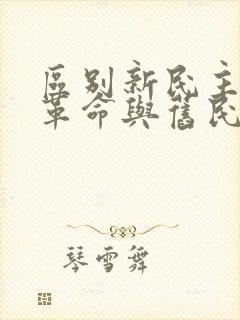 區別新民主
革命與舊民
琴雪舞